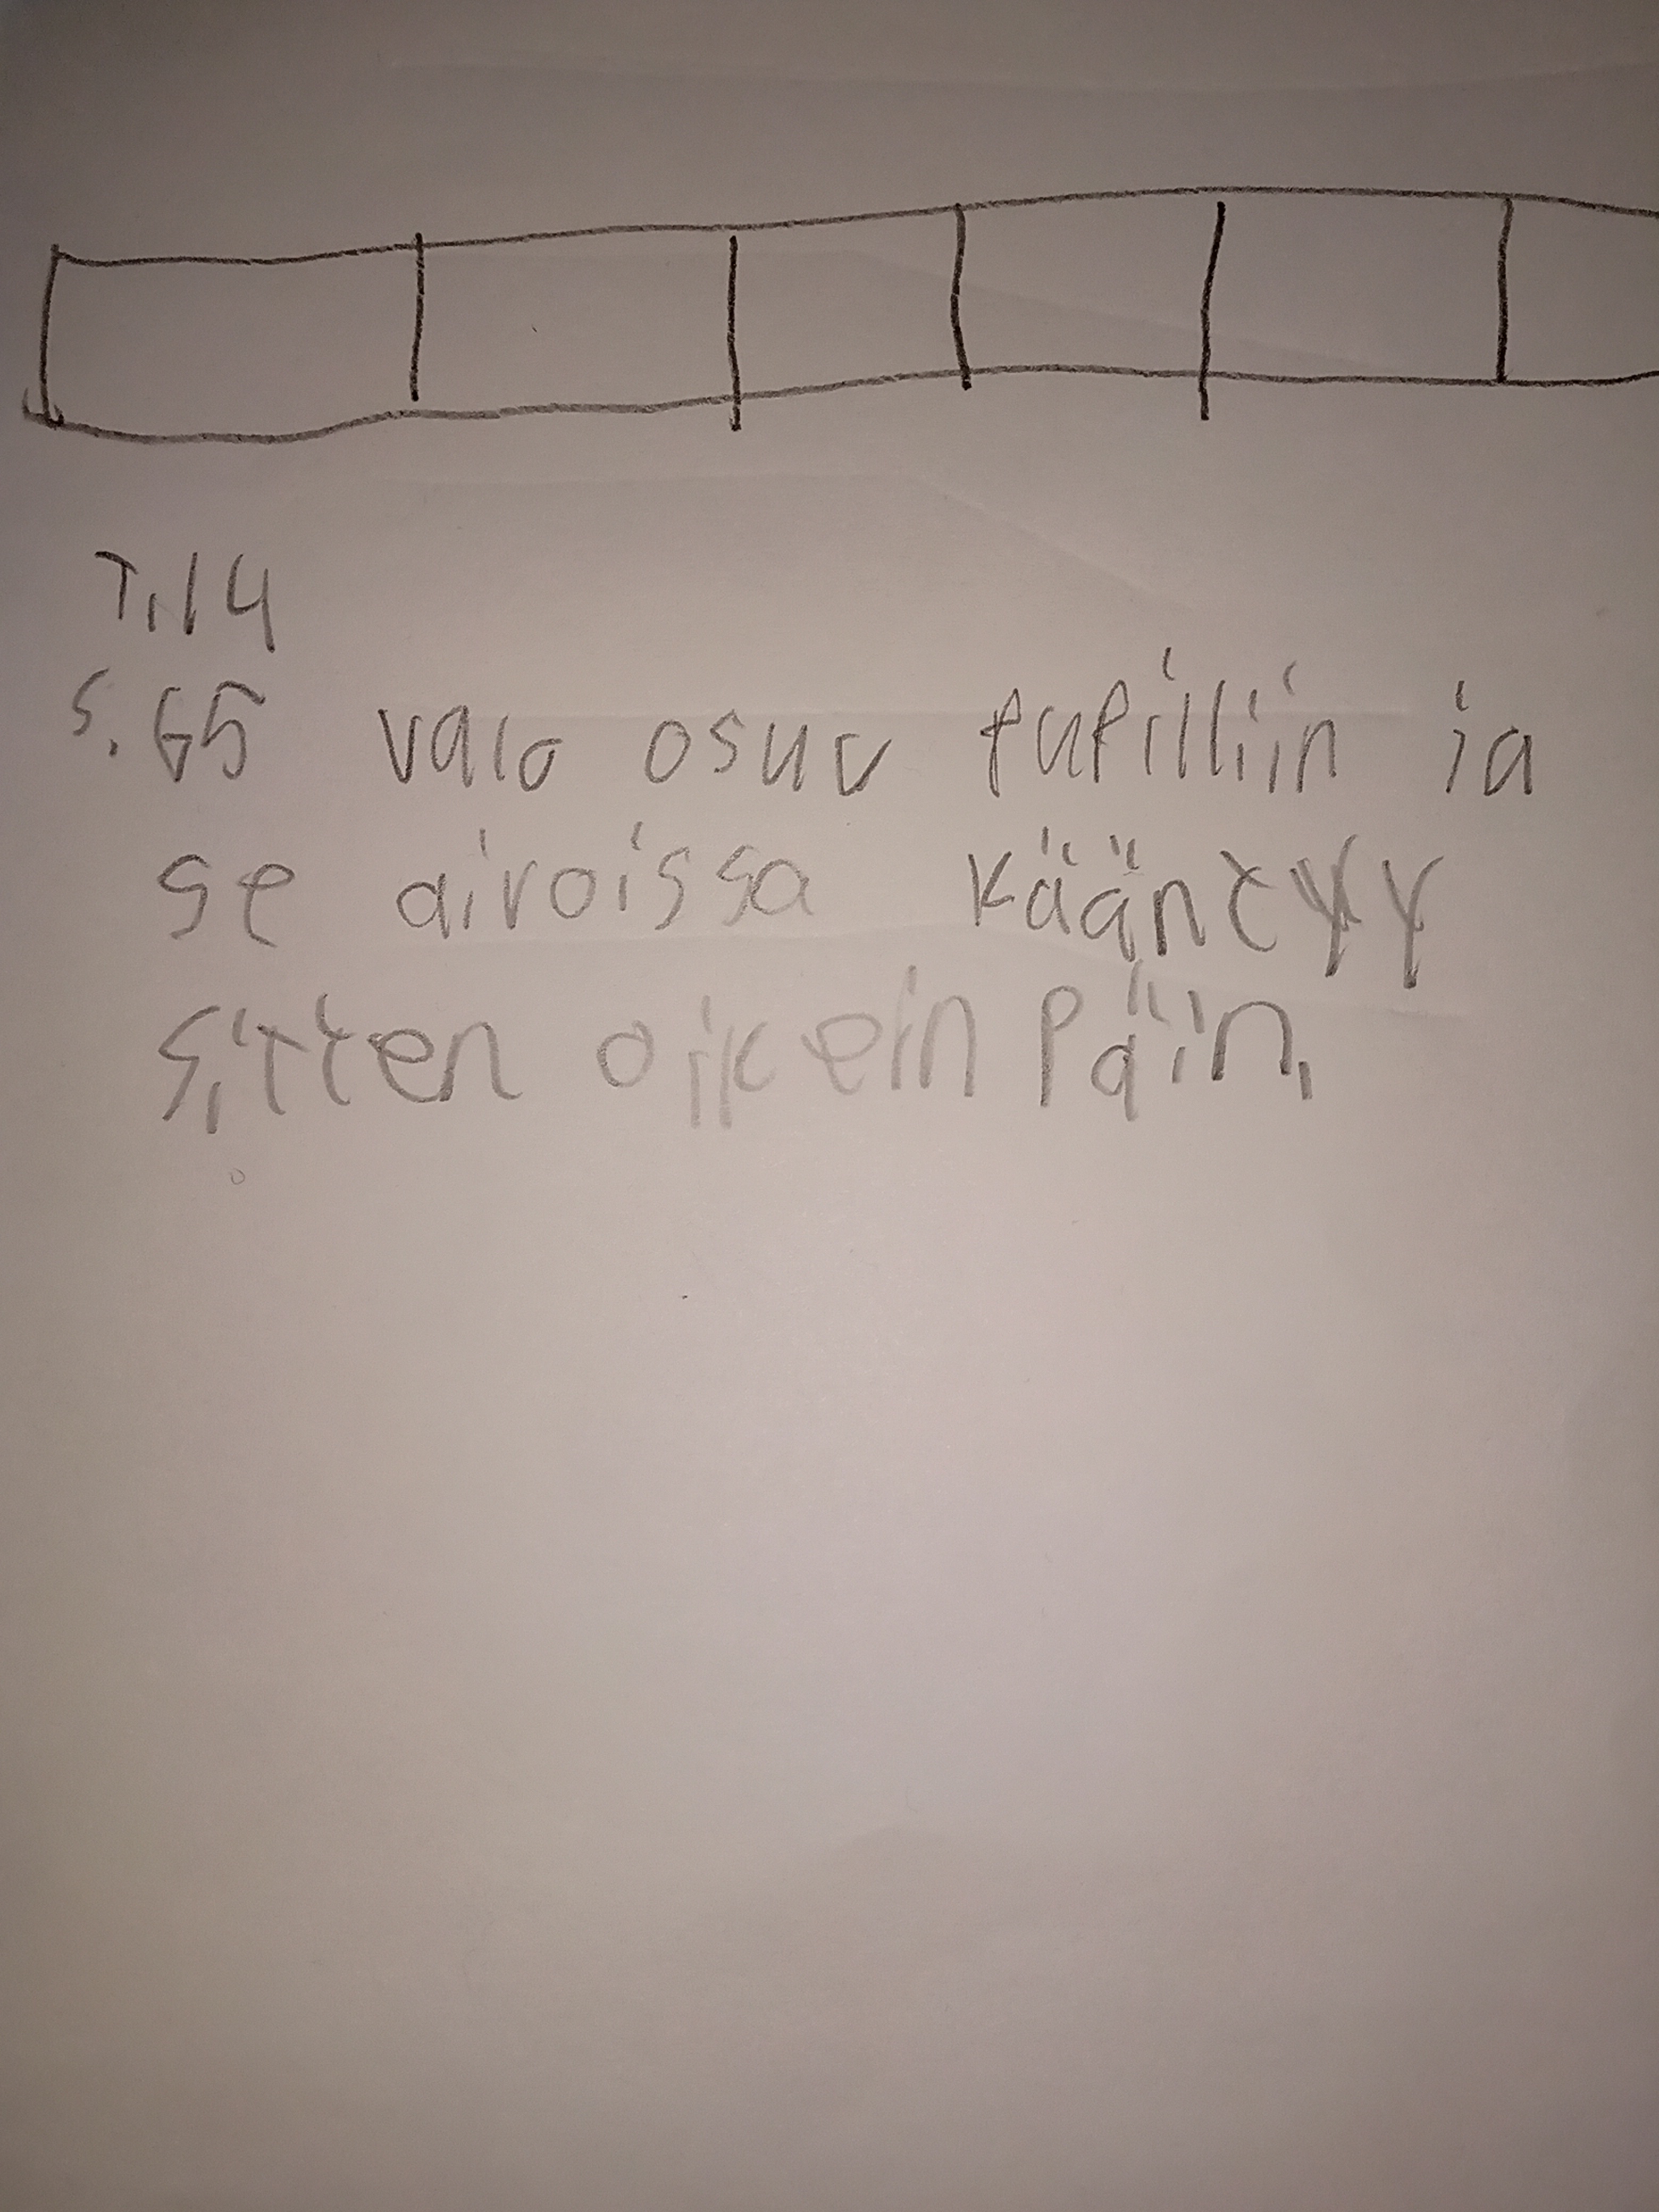 T.14
s.65 valo osuu pupilliin ja
se aivoissa kääntyy
sitten oikein päin.